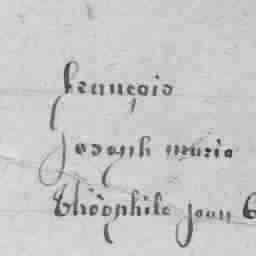 françois
Joseph marie
Théophile jean